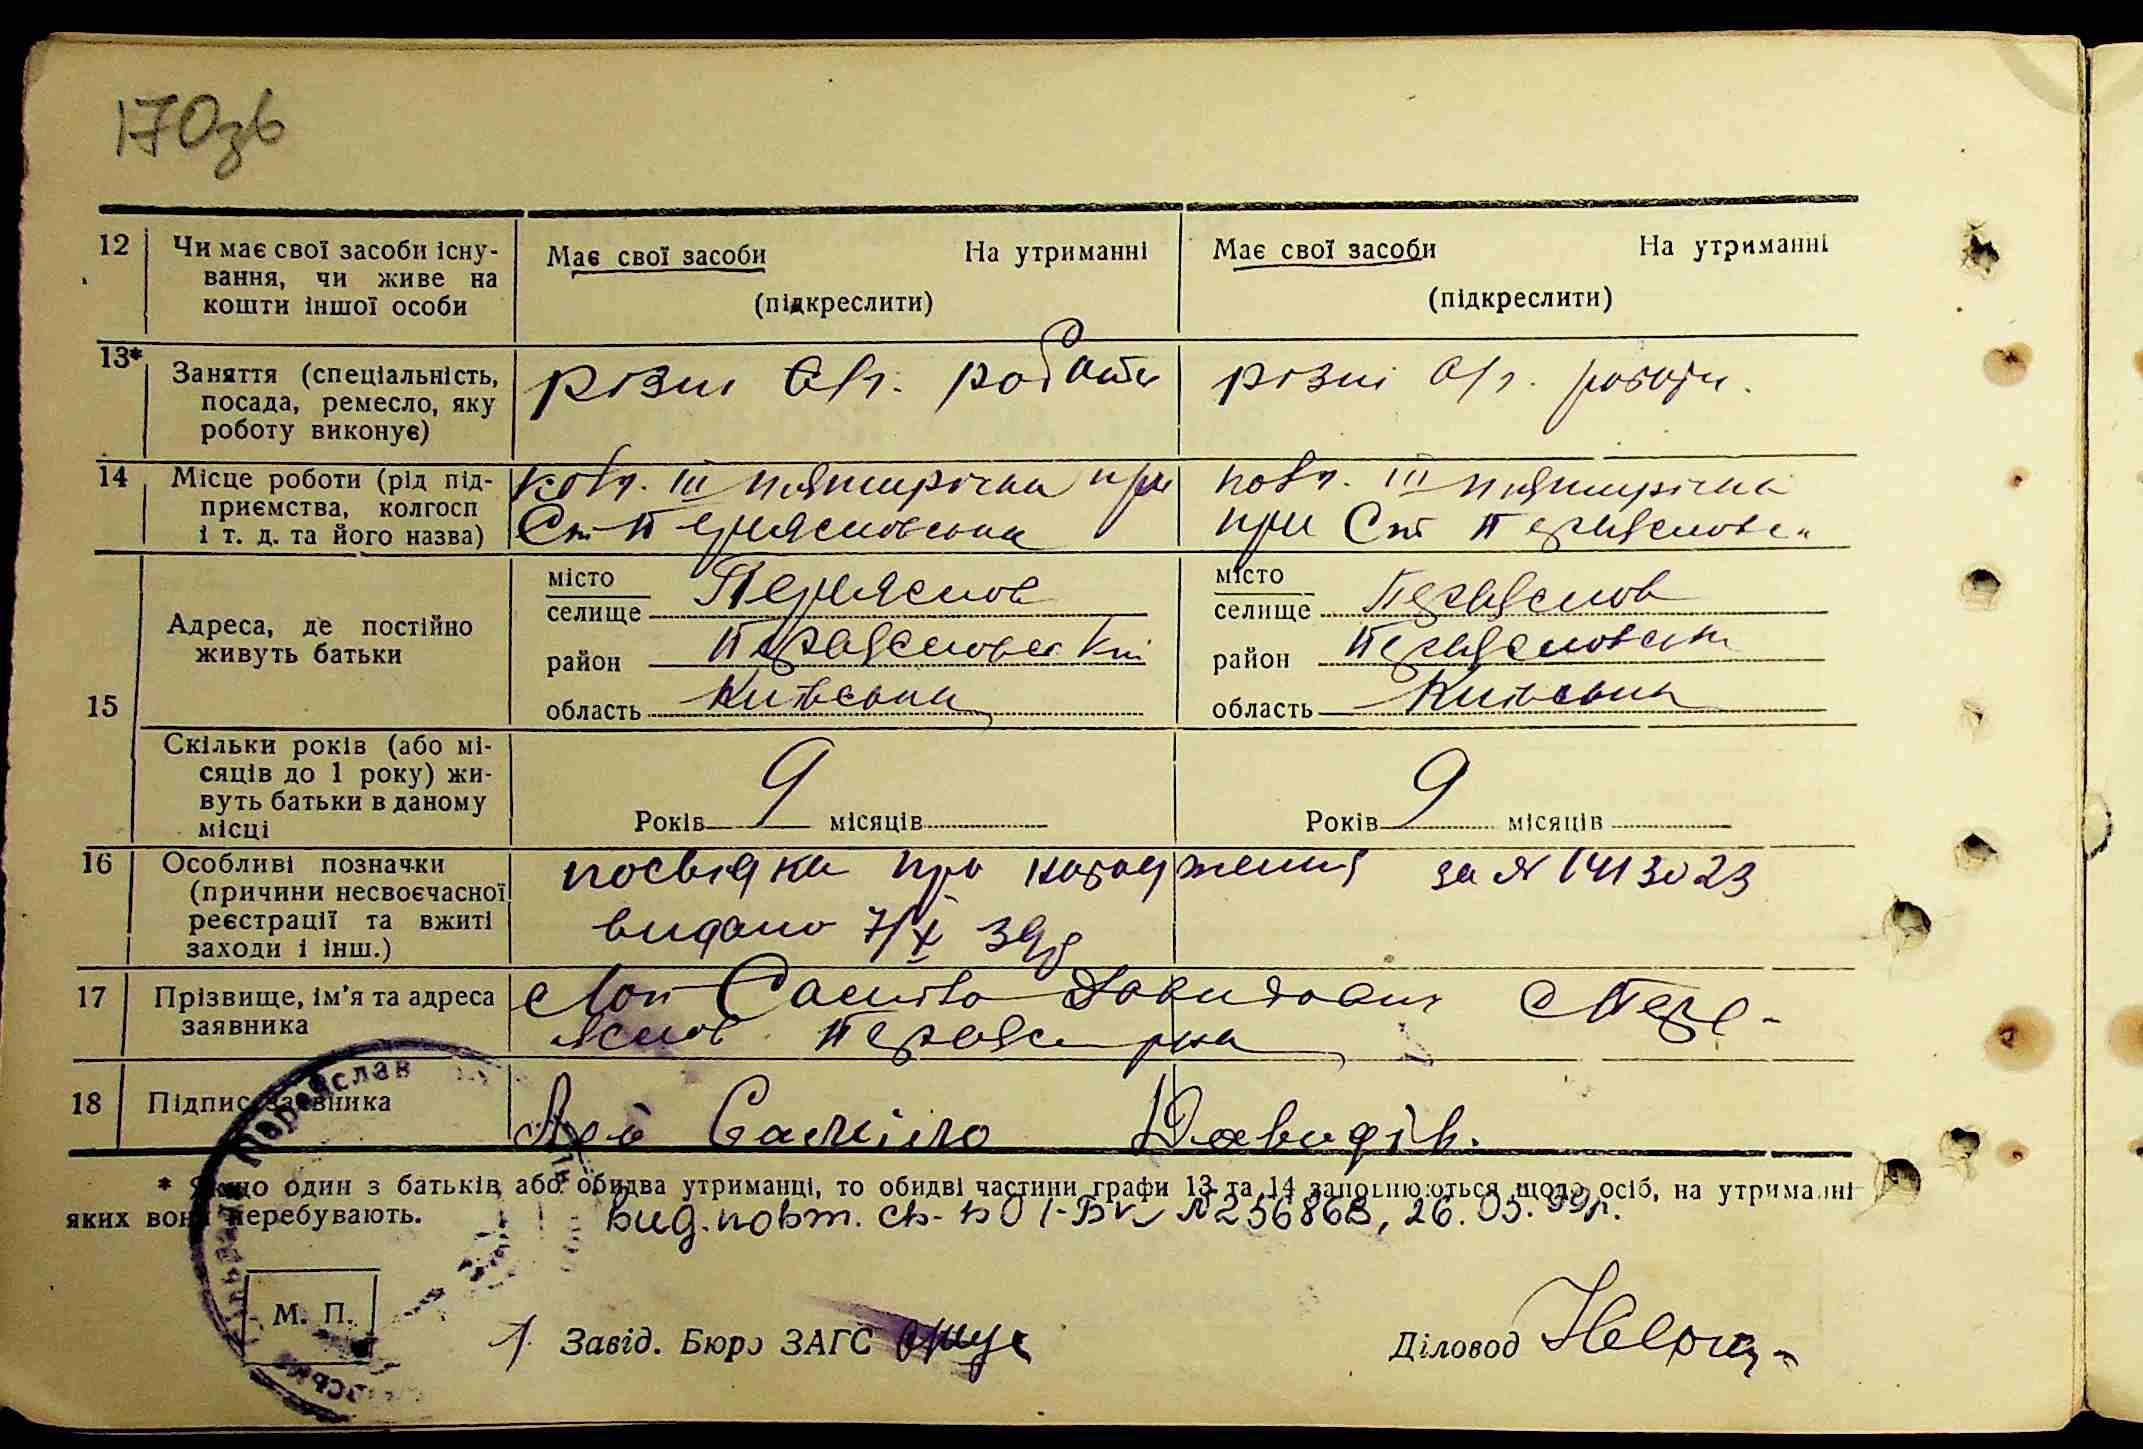 170зв
12 Чи має свої засоби існу-
вання, чи живе на
кошти іншої особи
Має свої засоби На утриманні
(підкреслити)
Має свої засоби На утриманні
(підкреслити)
13* Заняття (спеціальність,
посада, ремесло, яку
роботу виконує)
різні с/г. роботи
різні с/г. роботи.
14 Місце роботи (рід під-
приємства, колгосп
і т. д. та його назва)
колг. III пятирічка при
Ст Переясловська
колг. III пятирічка
при Ст Переясловс
15 Адреса, де постійно
живуть батьки
місто
селище Переяслов
район Переясловський
область Київська
місто
селище Переяслов
район Переясловськ
область Київська
Скільки років (або мі-
сяців до 1 року) жи-
вуть батьки в даному
місці
Років 9 місяців
Років 9 місяців
16 Особливі позначки
(причини несвоєчасної
реєстрації та вжиті
заходи і інш.)
посвідка про народження за № 1413023
видано 7/X 39р
17 Прізвище, ім’я та адреса
заявника
Самійло Давидович с Пере-
яслов Переясл р-на
18 Підпис заявника
Самійло Давидів.
* Якщо один з батьків або обидва утриманці, то обидві частини графи 13 та 14 заповнюються щодо осіб, на утриманні
яких вони перебувають.
вид. повт. св-во І-БК №256868, 26.05.99р.
М. П.
Завід. Бюро ЗАГС
Діловод
Переяслав